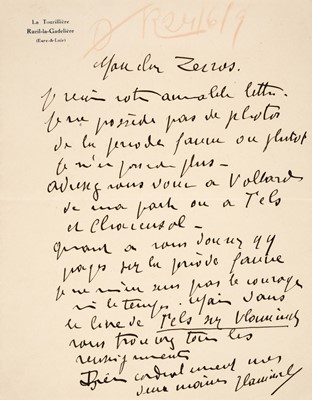 La Tourillière
Rueil-la-Gadelière
(Eure-de-Loir)
Mon cher Zervos.
Je reçois votre aimable lettre.
Je ne possède pas de photos
de la période fauve ou plutôt
je n'en possède plus —
adressez vous donc a Vollard
de ma part ou a Fels
et Chaumsol —
quant a vous donner qq
pages sur la période fauve
je ne m'en sens pas le courage
ni le temps. Mais dans
le livre de Fels sur Vlaminck
vous trouverez tous les
renseignements
Bien cordialement mes
deux mains Vlaminck